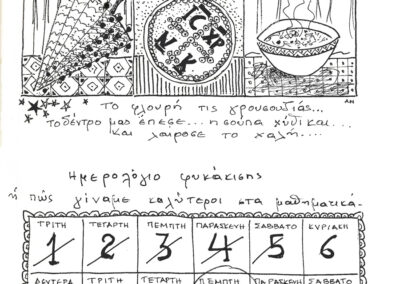 IC XP
N K
AN
Το φλουρή τις γρουσουζιάς...
το δέντρο μας έπεσε... η σούπα χύθικαι...
και λαίρωσε το χαλή....
Ημερολόγιο φυλάκισης
ή πώς γίναμε καλύτεροι στα μαθηματικά.
ΤΡΙΤΗ ΤΕΤΑΡΤΗ ΠΕΜΠΤΗ ΠΑΡΑΣΚΕΥΗ ΣΑΒΒΑΤΟ ΚΥΡΙΑΚΗ
1 2 3 4 5 6
ΔΕΥΤΕΡΑ ΤΡΙΤΗ ΤΕΤΑΡΤΗ ΠΕΜΠΤΗ ΠΑΡΑΣΚΕΥΗ ΣΑΒΒΑΤΟ